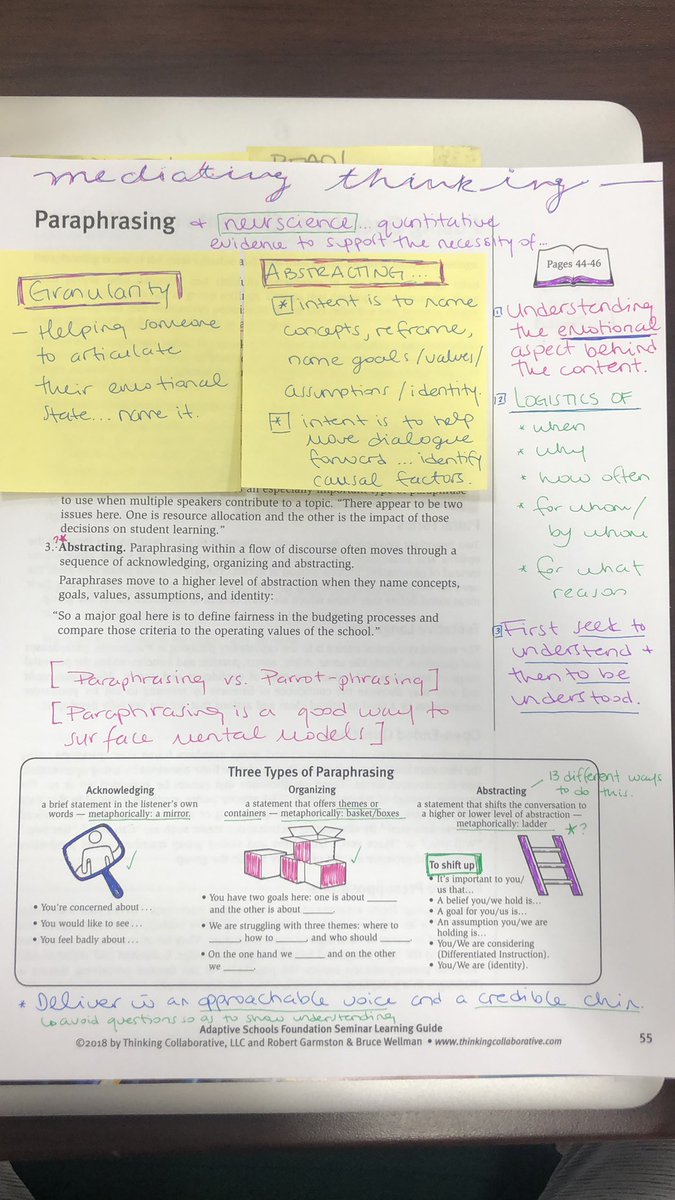 READ!
mediating thinking —
Paraphrasing + neurscience... quantitative
evidence to support the necessity of...
Pages 44-46
Granularity
– Helping someone
to articulate
their emotional
state... name it.
ABSTRACTING...
* intent is to name
concepts, reframe,
name goals/values/
assumptions/identity.
* intent is to help
move dialogue
forward ... identify
causal factors.
1 Understanding
the emotional
aspect behind
the content.
2 LOGISTICS OF
* when
* why
* how often
* for whom/
by whom
* for what
reason
3 First seek to
understand +
then to be
understood.
to use when multiple speakers contribute to a topic. “There appear to be two
issues here. One is resource allocation and the other is the impact of those
decisions on student learning.”
?*
3. Abstracting. Paraphrasing within a flow of discourse often moves through a
sequence of acknowledging, organizing and abstracting.
Paraphrases move to a higher level of abstraction when they name concepts,
goals, values, assumptions, and identity:
“So a major goal here is to define fairness in the budgeting processes and
compare those criteria to the operating values of the school.”
[Paraphrasing vs. Parrot-phrasing]
[Paraphrasing is a good way to
surface mental models]
Three Types of Paraphrasing
Acknowledging
a brief statement in the listener's own
words — metaphorically: a mirror.
• You're concerned about . . .
• You would like to see . . .
• You feel badly about . . .
Organizing
a statement that offers themes or
containers — metaphorically: basket/boxes
• You have two goals here: one is about ______
and the other is about ______.
• We are struggling with three themes: where to
______, how to ______, and who should ______.
• On the one hand we ______ and on the other
we ______.
13 different ways
to do this.
Abstracting
a statement that shifts the conversation to
a higher or lower level of abstraction —
metaphorically: ladder
*?
To shift up
• It's important to you/
us that...
• A belief you/we hold is...
• A goal for you/us is...
• An assumption you/we are
holding is...
• You/We are considering
(Differentiated Instruction).
• You/We are (identity).
* Deliver in an approachable voice and a credible chin.
↳ avoid questions so as to show understanding
Adaptive Schools Foundation Seminar Learning Guide
©2018 by Thinking Collaborative, LLC and Robert Garmston & Bruce Wellman • www.thinkingcollaborative.com
55